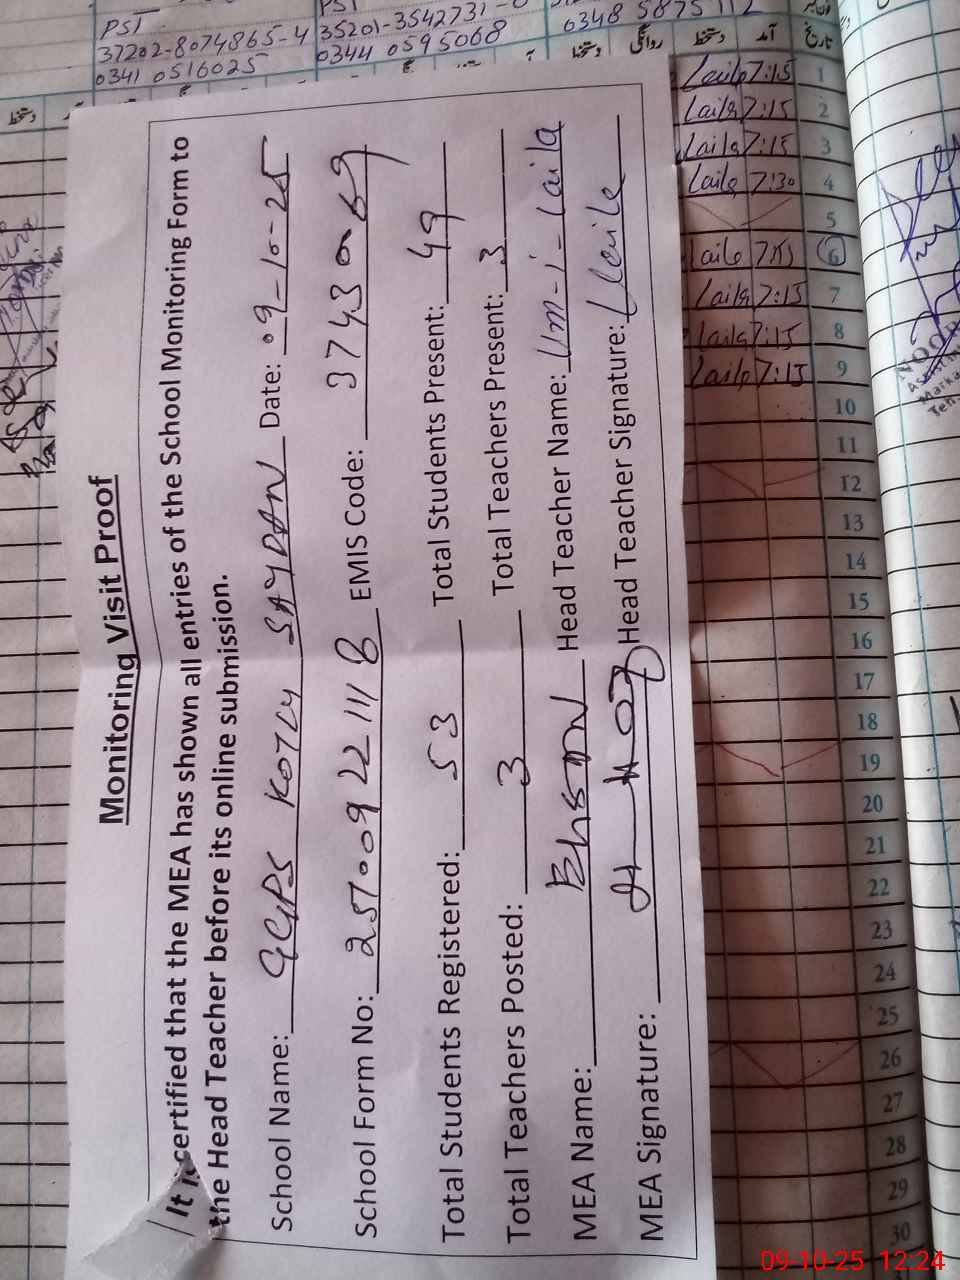 PST
37202-8074865-4
0341 0516025
PST
35201-3542731-
0344 0595068
0348 5875112
دستخط
روانگی
دستخط
آمد
تاریخ
Monitoring Visit Proof
It is certified that the MEA has shown all entries of the School Monitoring Form to
the Head Teacher before its online submission.
School Name: GGPS KOTLY SAYDAN Date: 09-10-25
School Form No: EMIS Code: 37430069
Total Students Registered: 53 Total Students Present: 49
Total Teachers Posted: 3 Total Teachers Present: 3
MEA Name: Ehsan Head Teacher Name: Um-i-laila
MEA Signature: Head Teacher Signature: Laila
Laila 7:15 1
Laila 7:15 2
Laila 7:15 3
Laila 7:30 4
5
Laila 7:15 6
Laila 7:15 7
Laila 7:15 8
Laila 7:15 9
10
11
12
13
14
15
16
17
18
19
20
21
22
23
24
25
26
27
28
29
30
09-10-25 12:24